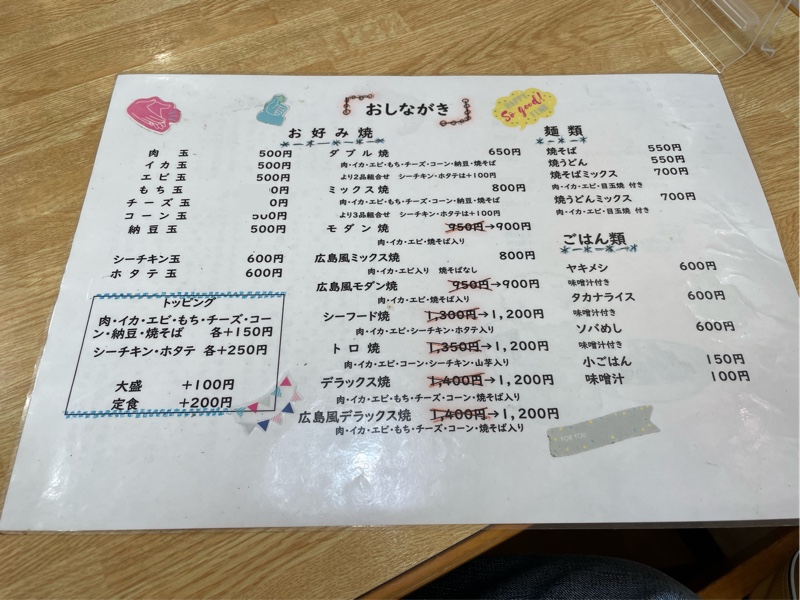 おしながき
HAPPY TIME
So good!
お好み焼
肉玉 500円
イカ玉 500円
エビ玉 500円
もち玉 0円
チーズ玉 0円
コーン玉 500円
納豆玉 500円
シーチキン玉 600円
ホタテ玉 600円
トッピング
肉・イカ・エビ・もち・チーズ・コー
ン・納豆・焼そば 各+150円
シーチキン・ホタテ 各+250円
大盛 +100円
定食 +200円
ダブル焼 650円
肉・イカ・エビ・もち・チーズ・コーン・納豆・焼そば
より2品組合せ シーチキン・ホタテは+100円
ミックス焼 800円
肉・イカ・エビ・もち・チーズ・コーン・納豆・焼そば
より3品組合せ シーチキン・ホタテは+100円
モダン焼 950円→900円
肉・イカ・エビ・焼そば入り
広島風ミックス焼 800円
肉・イカ・エビ入り 焼そばなし
広島風モダン焼 950円→900円
肉・イカ・エビ・焼そば入り
シーフード焼 1,300円→1,200円
イカ・エビ・シーチキン・ホタテ入り
トロ焼 1,350円→1,200円
肉・イカ・エビ・コーン・シーチキン・山芋入り
デラックス焼 1,400円→1,200円
肉・イカ・エビ・もち・チーズ・コーン・焼そば入り
広島風デラックス焼 1,400円→1,200円
肉・イカ・エビ・もち・チーズ・コーン・焼そば入り
麺類
焼そば 550円
焼うどん 550円
焼そばミックス 700円
肉・イカ・エビ・目玉焼 付き
焼うどんミックス 700円
肉・イカ・エビ・目玉焼 付き
ごはん類
ヤキメシ 600円
味噌汁付き
タカナライス 600円
味噌汁付き
ソバめし 600円
味噌汁付き
小ごはん 150円
味噌汁 100円
FOR YOU